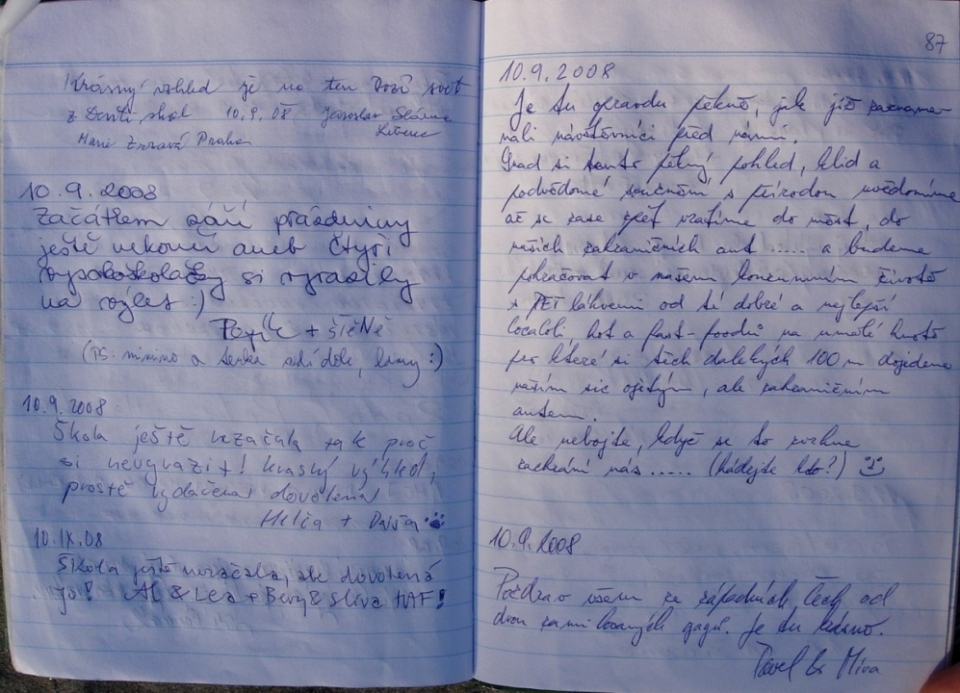 Krásný vzhled je na ten Boží svět
z skal 10.9.08 Jaroslav
Marie Praha
10.9.2008
Začátkem září prázdniny
ještě nekončí aneb čtyři
vysokoškolačky si vyrazily
na výlet :)
+ štěNě
(PS: mínimo a :)
10.9.2008
Škola ještě nezačala tak proč
si nevyrazit! krásný výhled,
prostě vydařená dovolená
Helča +
10.IX.08
Škola ještě nezačala, ale dovolená
jo! Al & Lea + Bery & Slíva HAF!
87
10.9.2008
Je tu opravdu pěkně, jak již zazname-
nali návštěvníci před námi.
Snad si tento pěkný pohled, klid a
podvědomé s přírodou uvědomíme
až se zase zpět vrátíme do měst, do
našich zahraničních aut ..... a budeme
pokračovat v našem konzumním životě
s PET láhvemi od té dobré a nejlepší
Cocacoli, hot a fast-foodů na umělé hmotě
pro které si těch dalekých 100 m dojedeme
naším sic ojetým, ale zahraničním
autem.
Ale nebojte, když se to zvrhne
zachrání nás ..... (hádejte kdo?)
10.9.2008
Pozdrav všem ze západních Čech od
dvou zamilovaných gagů. Je tu krásno.
Pavel & Míra